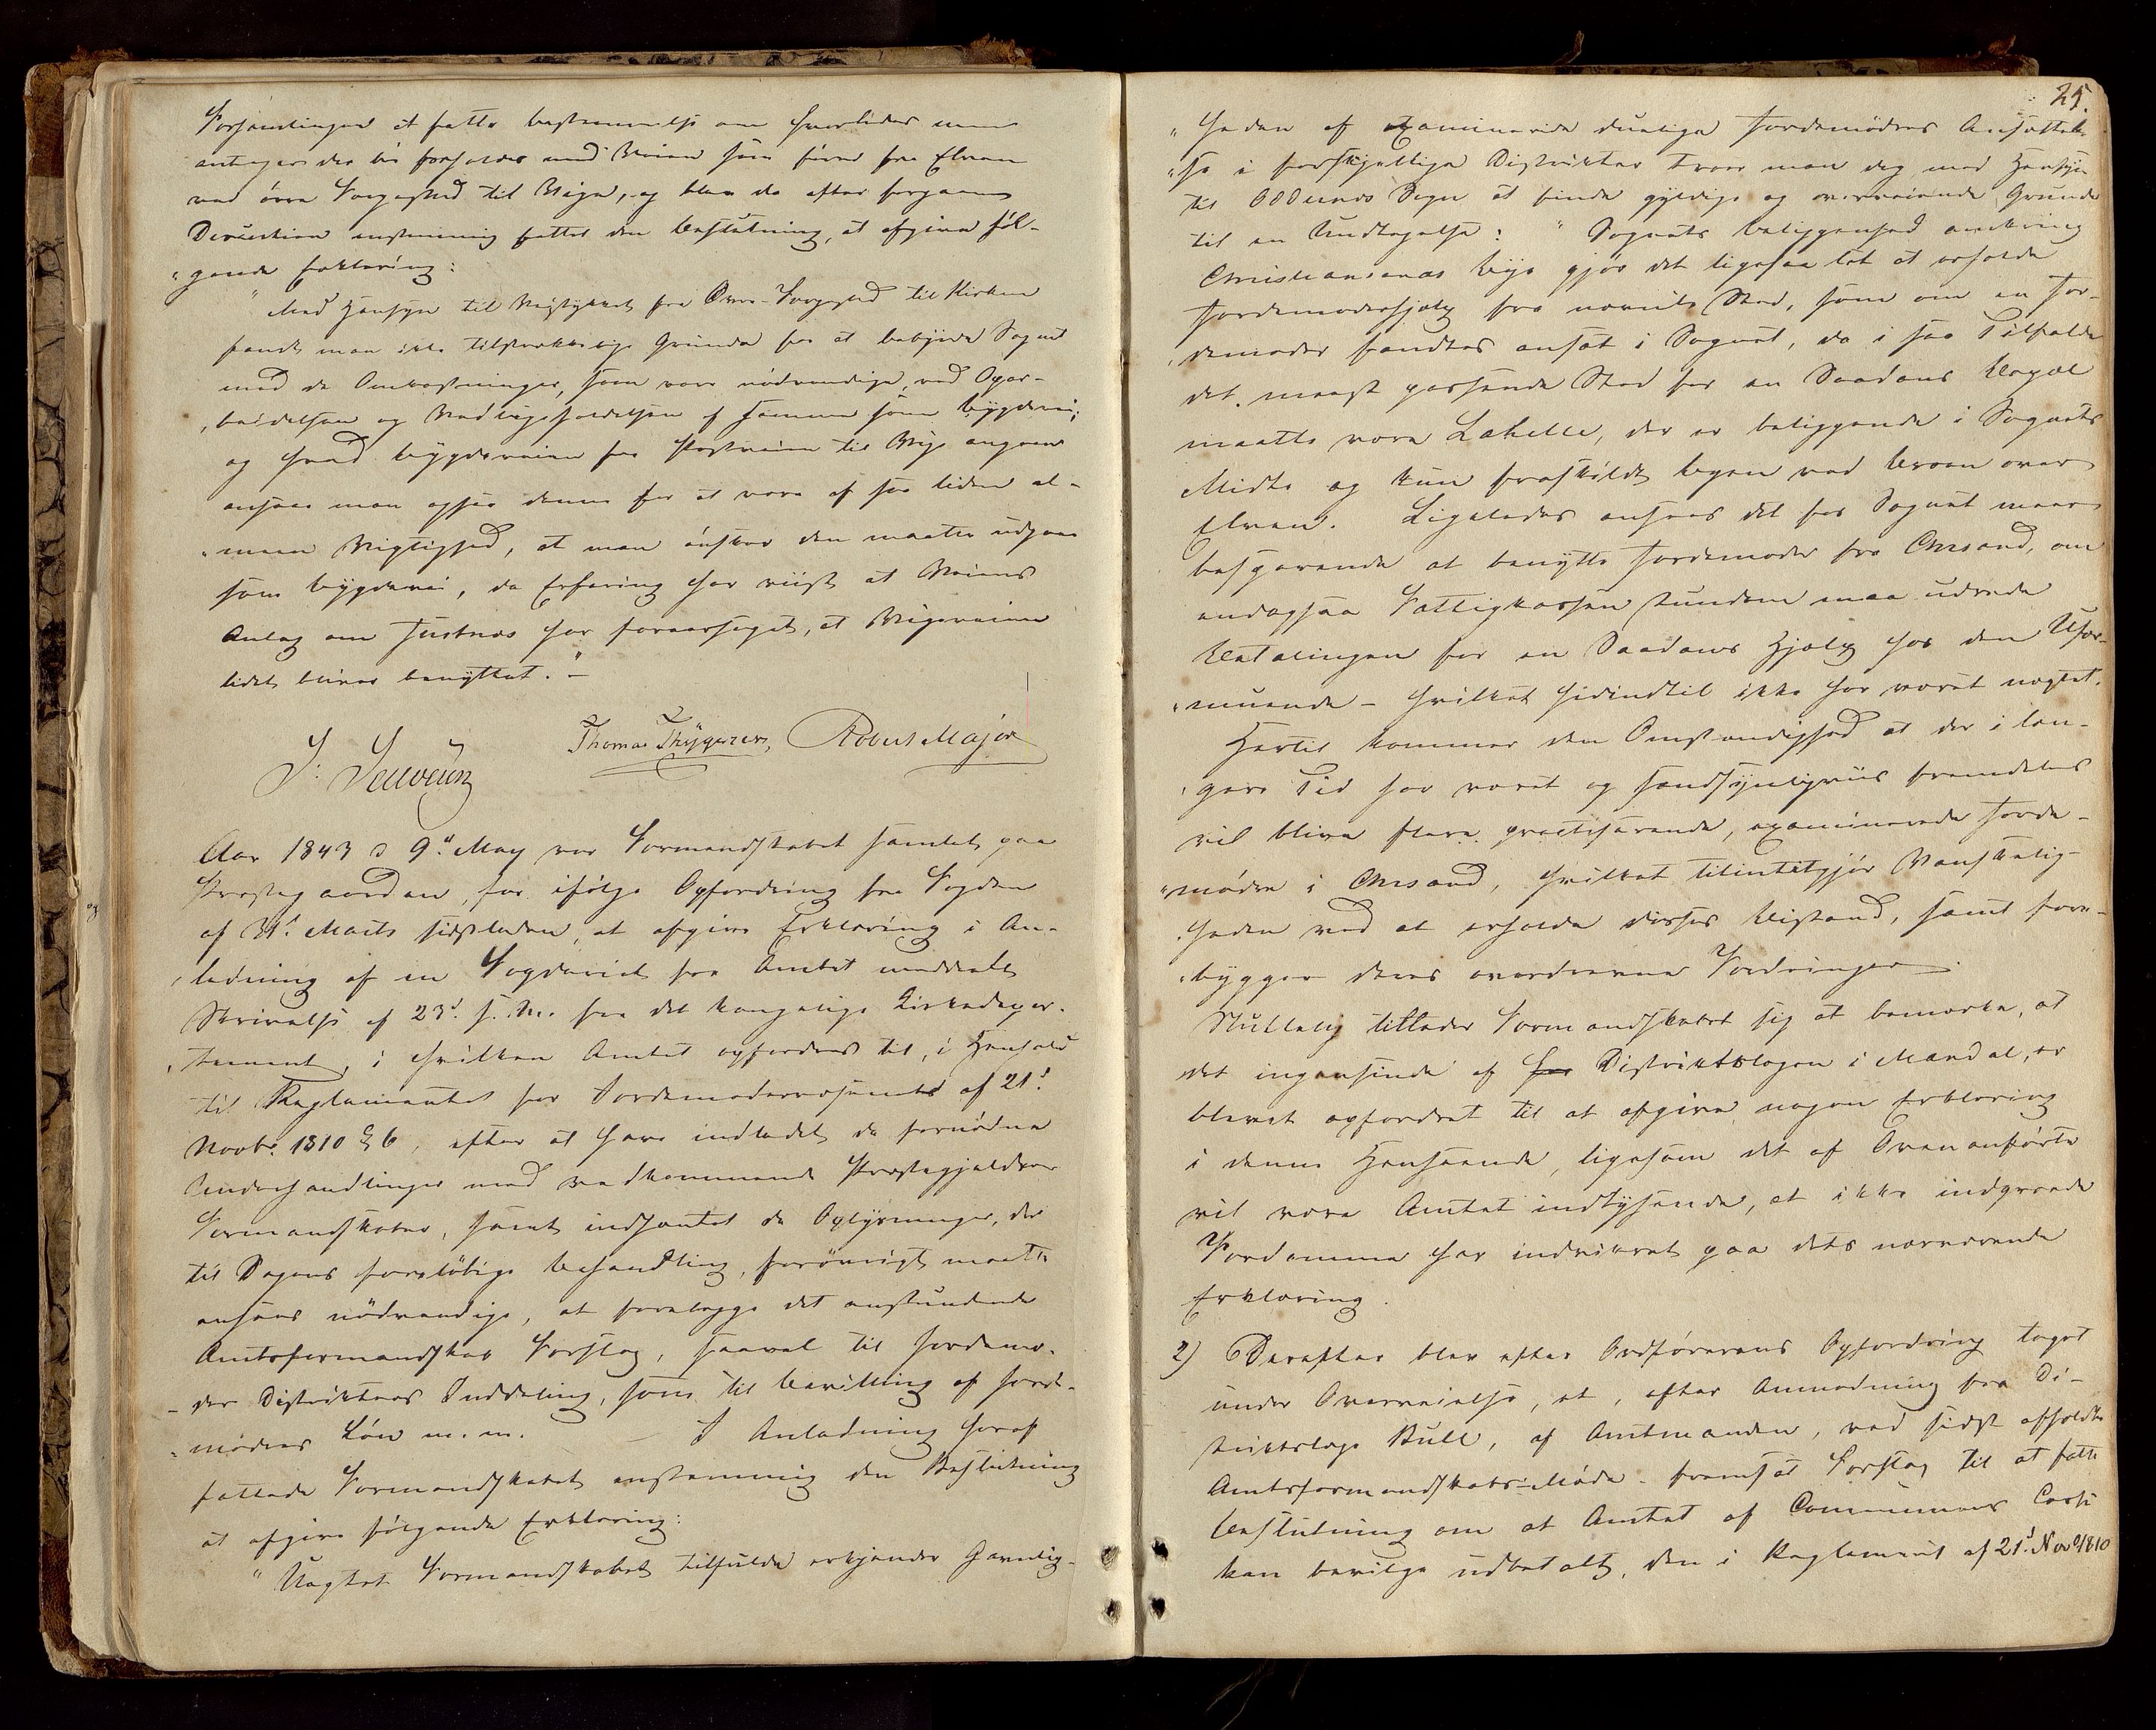 Forsamlingen at fatte bestemmelse om hvorledes man
antager der bør forholdes med Veien som fører fra Elven
ved øvre Vogsted til Vige, og blev da efter foregaaende
Discution enstemmig fattet den Beslutning, at afgive føl-
"gende Erklæring:
" Med Hensyn til Veistykket fra Øvre-Vogsted til Kirken
fandt man ikke tilstrækkelige Grunde for at bebyrde Sognet
med de Omkostninger, som vare nødvendige, ved Opar-
"beidelsen og Vedligeholdelsen af samme som bygdevei;
og hvad bygdeveien fra Postveien til Vige angaaer
ansaae man ogsaa denne for at være af saa liden al-
"meen Vigtighed, at man ønsker den maatte udgaae
som bygdevei, da Erfaring har viist at Veiens
Anlæg om Justnæs har foraarsaget, at Vigeveien
lidet bliver benyttet." –
J: Jeuveun Thomas Thÿgesen, Robert Major
Aar 1843 d 9.d May var Formandskabet samlet paa
Præstegaarden, for ifølge Opfordring fra Fogden
af 31.d Marts sidstleden, at afgive Erklæring i An-
"ledning af en Fogderiet fra Amtet meddeelt
Skrivelse af 23.d s. M. fra det kongelige Kirkedepar-
"tement, i hvilken Amtet opfordres til, i Henhold
til Reglementet for Jordemodervæsenet af 21.d
Novbr. 1810 § 6, efter at have indledet de fornødne
Underhandlinger med vedkommende Præstegjelds
Formandskaber, samt indhentet de Oplysninger, der
til Sagens foreløbige Behandling, forøvrigt maatte
ansees nødvendige, at forelægge det anstundende
Amtsformandskab Forslag, saavel til Jordemo-
"der Distrikternes Inddeling, som til Bevilling af Jorde-
"mødres Løn m. m. I Anledning heraf
fattede Formandskabet enstemmig den Beslutning
at afgive følgende Erklæring:
" Uagtet Formandskabet tilfulde erkjender Gavnlig-
25.
"heden af examinerede duelige Jordemødres Ansættel-
"se i forskjellige Distrikter troer man dog med Hensyn
til Oddernes Sogn at finde gyldige og overveiende Grunde
til en Undtagelse: " Sognets beliggenhed omkring
Christiansands Bye gjør det ligesaa let at erholde
Jordemoderhjelp fra nævnte Sted, som om en Jor-
"demoder fandtes ansat i Sognet, da i saa Tilfælde
det meest passende Sted for en Saadans Bopæl
maatte være Lahelle, der er beliggende i Sognets
Midte og kun fraskildt Byen ved Broen over
Elven. Ligeledes ansees det for Sognet mere
besparende at benytte Jordemoder fra Chrsand, om
endogsaa Fattigkassen stundom maa udrede
Betalingen for en Saadans Hjelp hos den Ufor-
"muende – hvilket hidindtil ikke har været nægtet.
Hertil kommer den Omstændighed at der i læn-
"gere Tid har været og sandsynligviis fremdeles
vil blive flere practiserende, examinerede Jorde-
"mødre i Chrsand, hvilket tilintetgjør Vanskelig-
"heden ved at erholde disses Bistand, samt fore-
"bygger deres overdrevne Fordringer.
Sluttelig tillader Formandskabet sig at bemærke, at
det ingensinde af for Distriktslægen i Mandal, er
blevet opfordret til at afgive nogen Erklæring
i denne Henseende, ligesom det af Ovenanførte
vil være Amtet indlysende, at ikke indgroede
Fordomme har indvirket paa dets nærværende
Erklæring.
2) Derefter blev efter Ordførerens Opfordring taget
under Overveielse, et, efter Anmodning fra Di-
striktslæge Bull, af Amtmanden, ved sidst afholdte
Amtsformandskabs-Møde fremsat Forslag til at fatte
Beslutning om at Amtet af Communens Casse
kan bevilge udbetalt, den i Reglement af 21.d Nov 1810